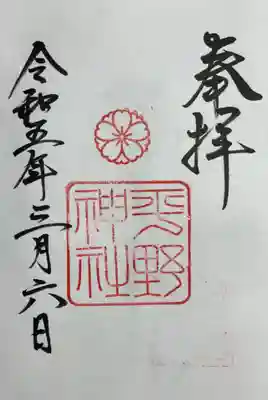 奉拝
平野
神社
令和五年三月六日